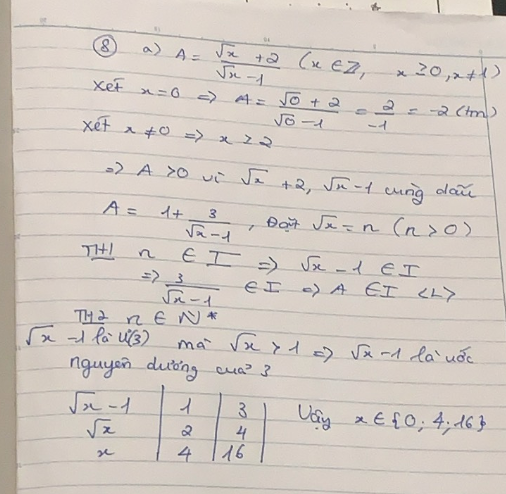 ⑧ a) A = (√x + 2)/(√x - 1) (x ∈ Z, x ≥ 0, x ≠ 1)
Xét x = 0 => A = (√0 + 2)/(√0 - 1) = 2/-1 = -2 (tm)
Xét x ≠ 0 => x ≥ 2
=> A > 0 vì √x + 2, √x - 1 cùng dấu
A = 1 + 3/(√x - 1), Đặt √x = n (n > 0)
TH1 n ∈ I => √x - 1 ∈ I
=> 3/(√x - 1) ∈ I => A ∈ I <L>
TH2 n ∈ N*
√x - 1 là Ư(3) mà √x > 1 => √x - 1 là ước
nguyên dương của 3
√x - 1 | 1 | 3 |
√x | 2 | 4 |
x | 4 | 16 |
Vậy x ∈ {0; 4; 16}